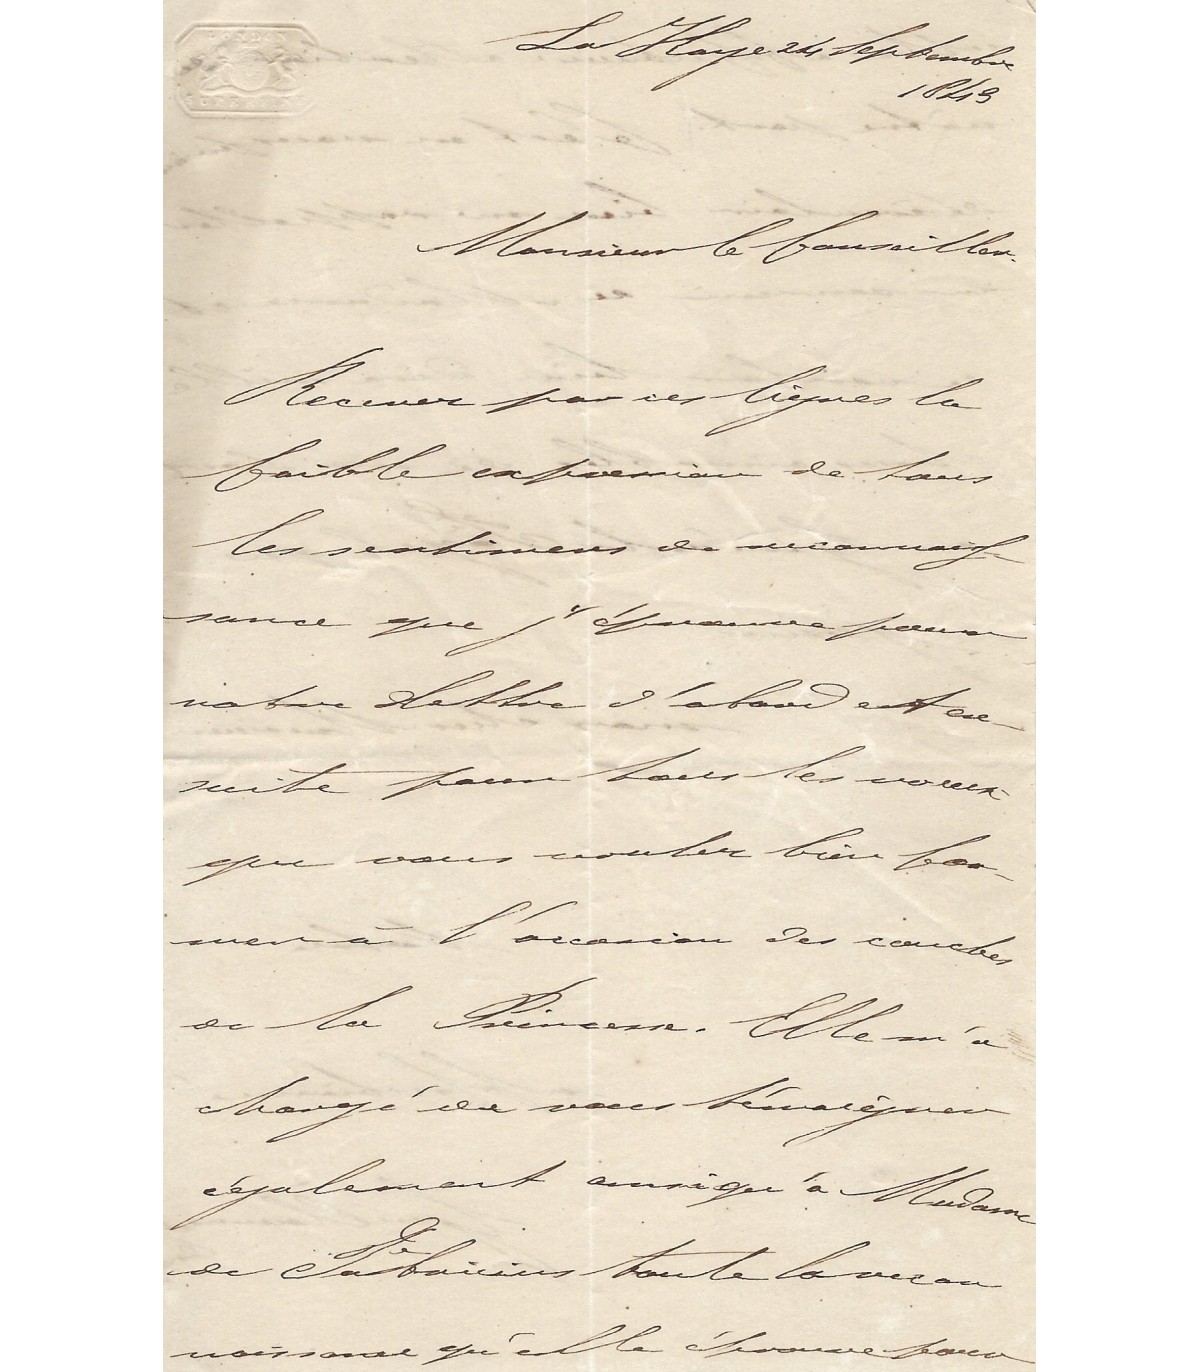 LONDON
SUPERFINE
La Haye 24 Septembre
1843
Monsieur le Conseiller.
Recevez par ces lignes la
faible expression de tous
les sentimens de reconnais-
sance que j'éprouve pour
votre lettre d'abord et en-
suite pour tous les voeux
que vous voulez bien for-
mer à l'occasion des couches
de la Princesse. Elle m'a
chargé de vous témoigner
également ainsi qu'à Madame
de toute la recon
naissance qu'elle éprouve pour